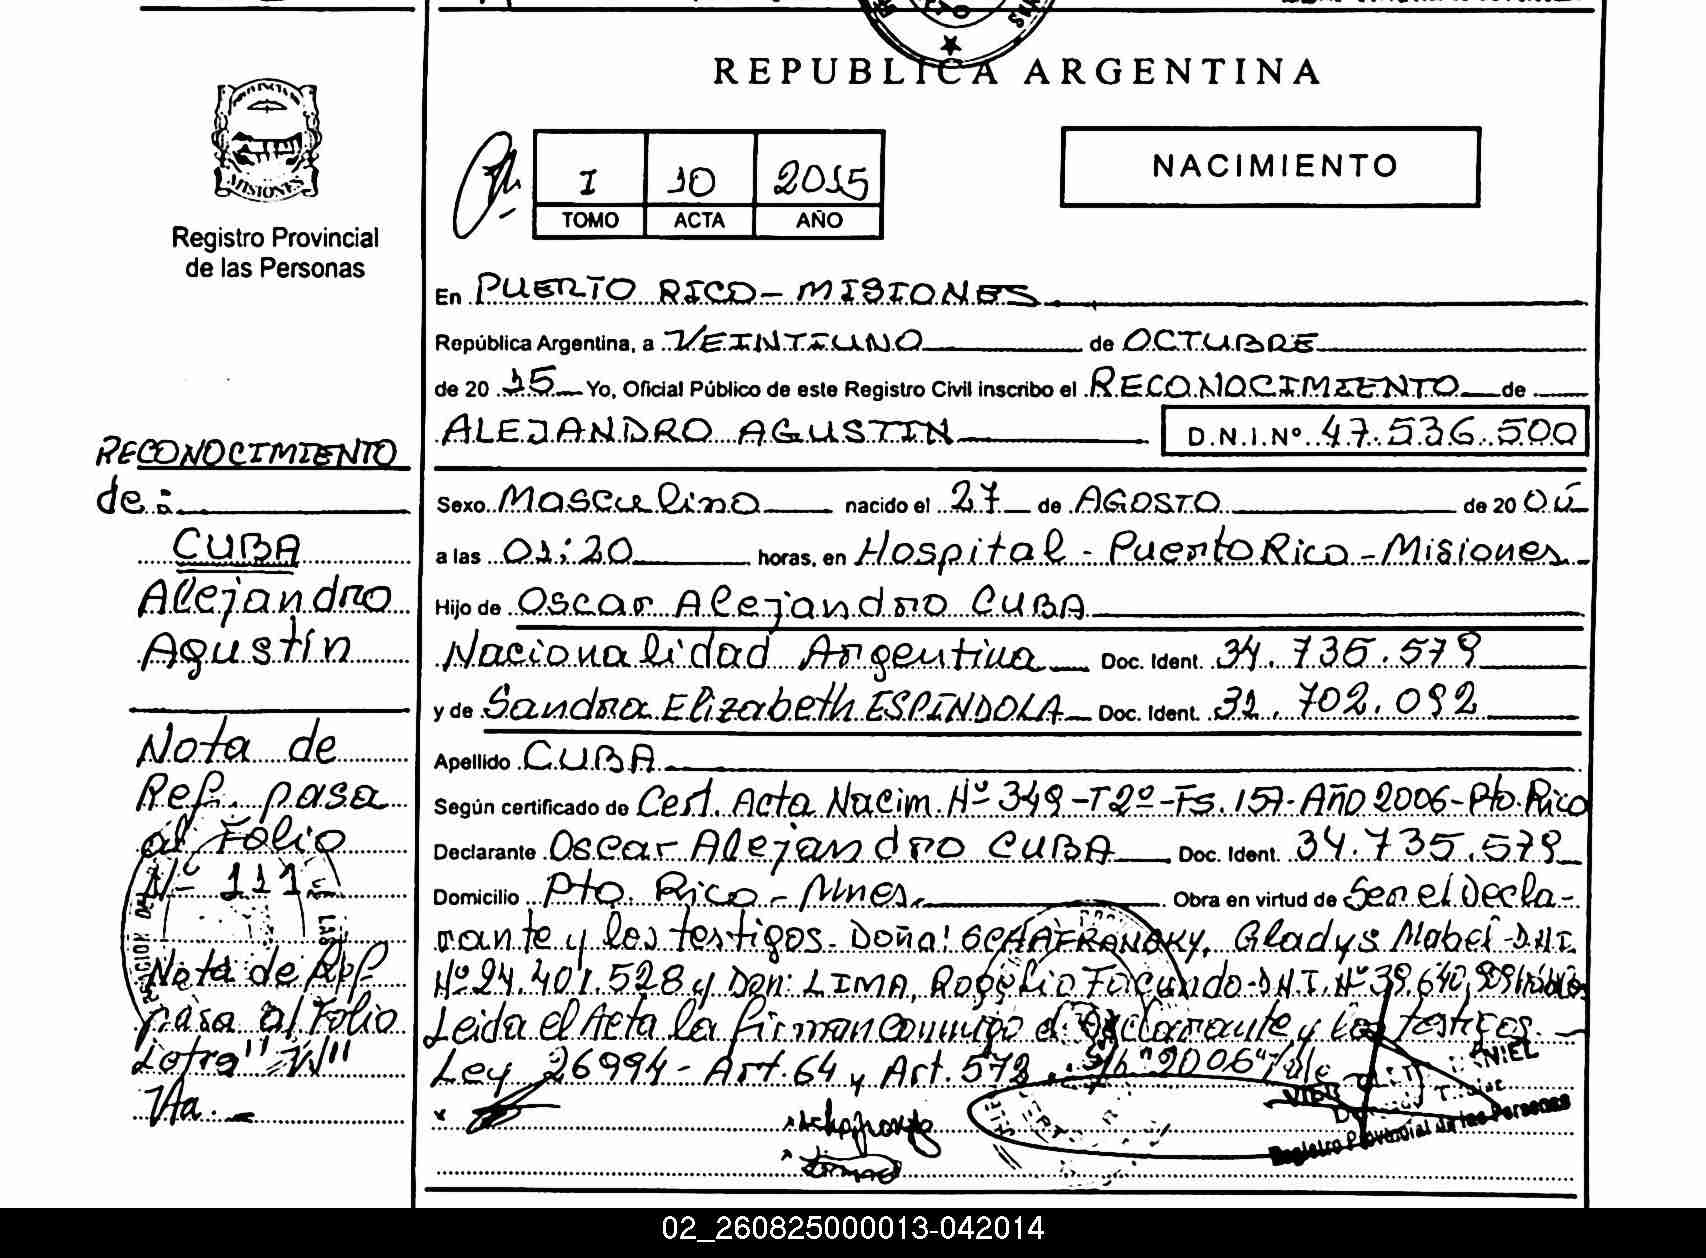 REPUBLICA ARGENTINA
MISIONES
Registro Provincial
de las Personas
I 10 2015
TOMO ACTA AÑO
NACIMIENTO
En PUERTO RICO - MISIONES
República Argentina, a VEINTIUNO de OCTUBRE
de 20 15 Yo, Oficial Público de este Registro Civil inscribo el RECONOCIMIENTO de
ALEJANDRO AGUSTIN D.N.I.Nº 47.536.500
Sexo Masculino nacido el 27 de AGOSTO de 20
a las 01:20 horas, en Hospital - Puerto Rico - Misiones
Hijo de Oscar Alejandro CUBA
Nacionalidad Argentina Doc. Ident. 34.735.579
y de Sandra Elizabeth ESPINDOLA Doc. Ident. 31.702.092
Apellido CUBA
Según certificado de Cert. Acta Nacim. Nº 349-T2º-Fs.157-Año 2006-Pto. Rico
Declarante Oscar Alejandro CUBA Doc. Ident. 34.735.579
Domicilio Pto. Rico - Mnes. Obra en virtud de Ser el Decla-
rante y los testigos. Doña: SCHAFRANSKY, Gladys Mabel - D.N.I.
Nº 24.401.528 y Don: LIMA, Rogelio Facundo - D.N.I. Nº 39.640.
Leida el Acta la firman conmigo el Declarante y los testigos.
Ley 26994 - Art. 64 y Art. 573. S/b "2006" Vale
Registro Provincial de las Personas
RECONOCIMIENTO
de:
CUBA
Alejandro
Agustín
Nota de
Ref. pasa
al Folio
Nº 111
Nota de Ref.
pasa al Folio
Letra "W"
Vta.
02_260825000013-042014